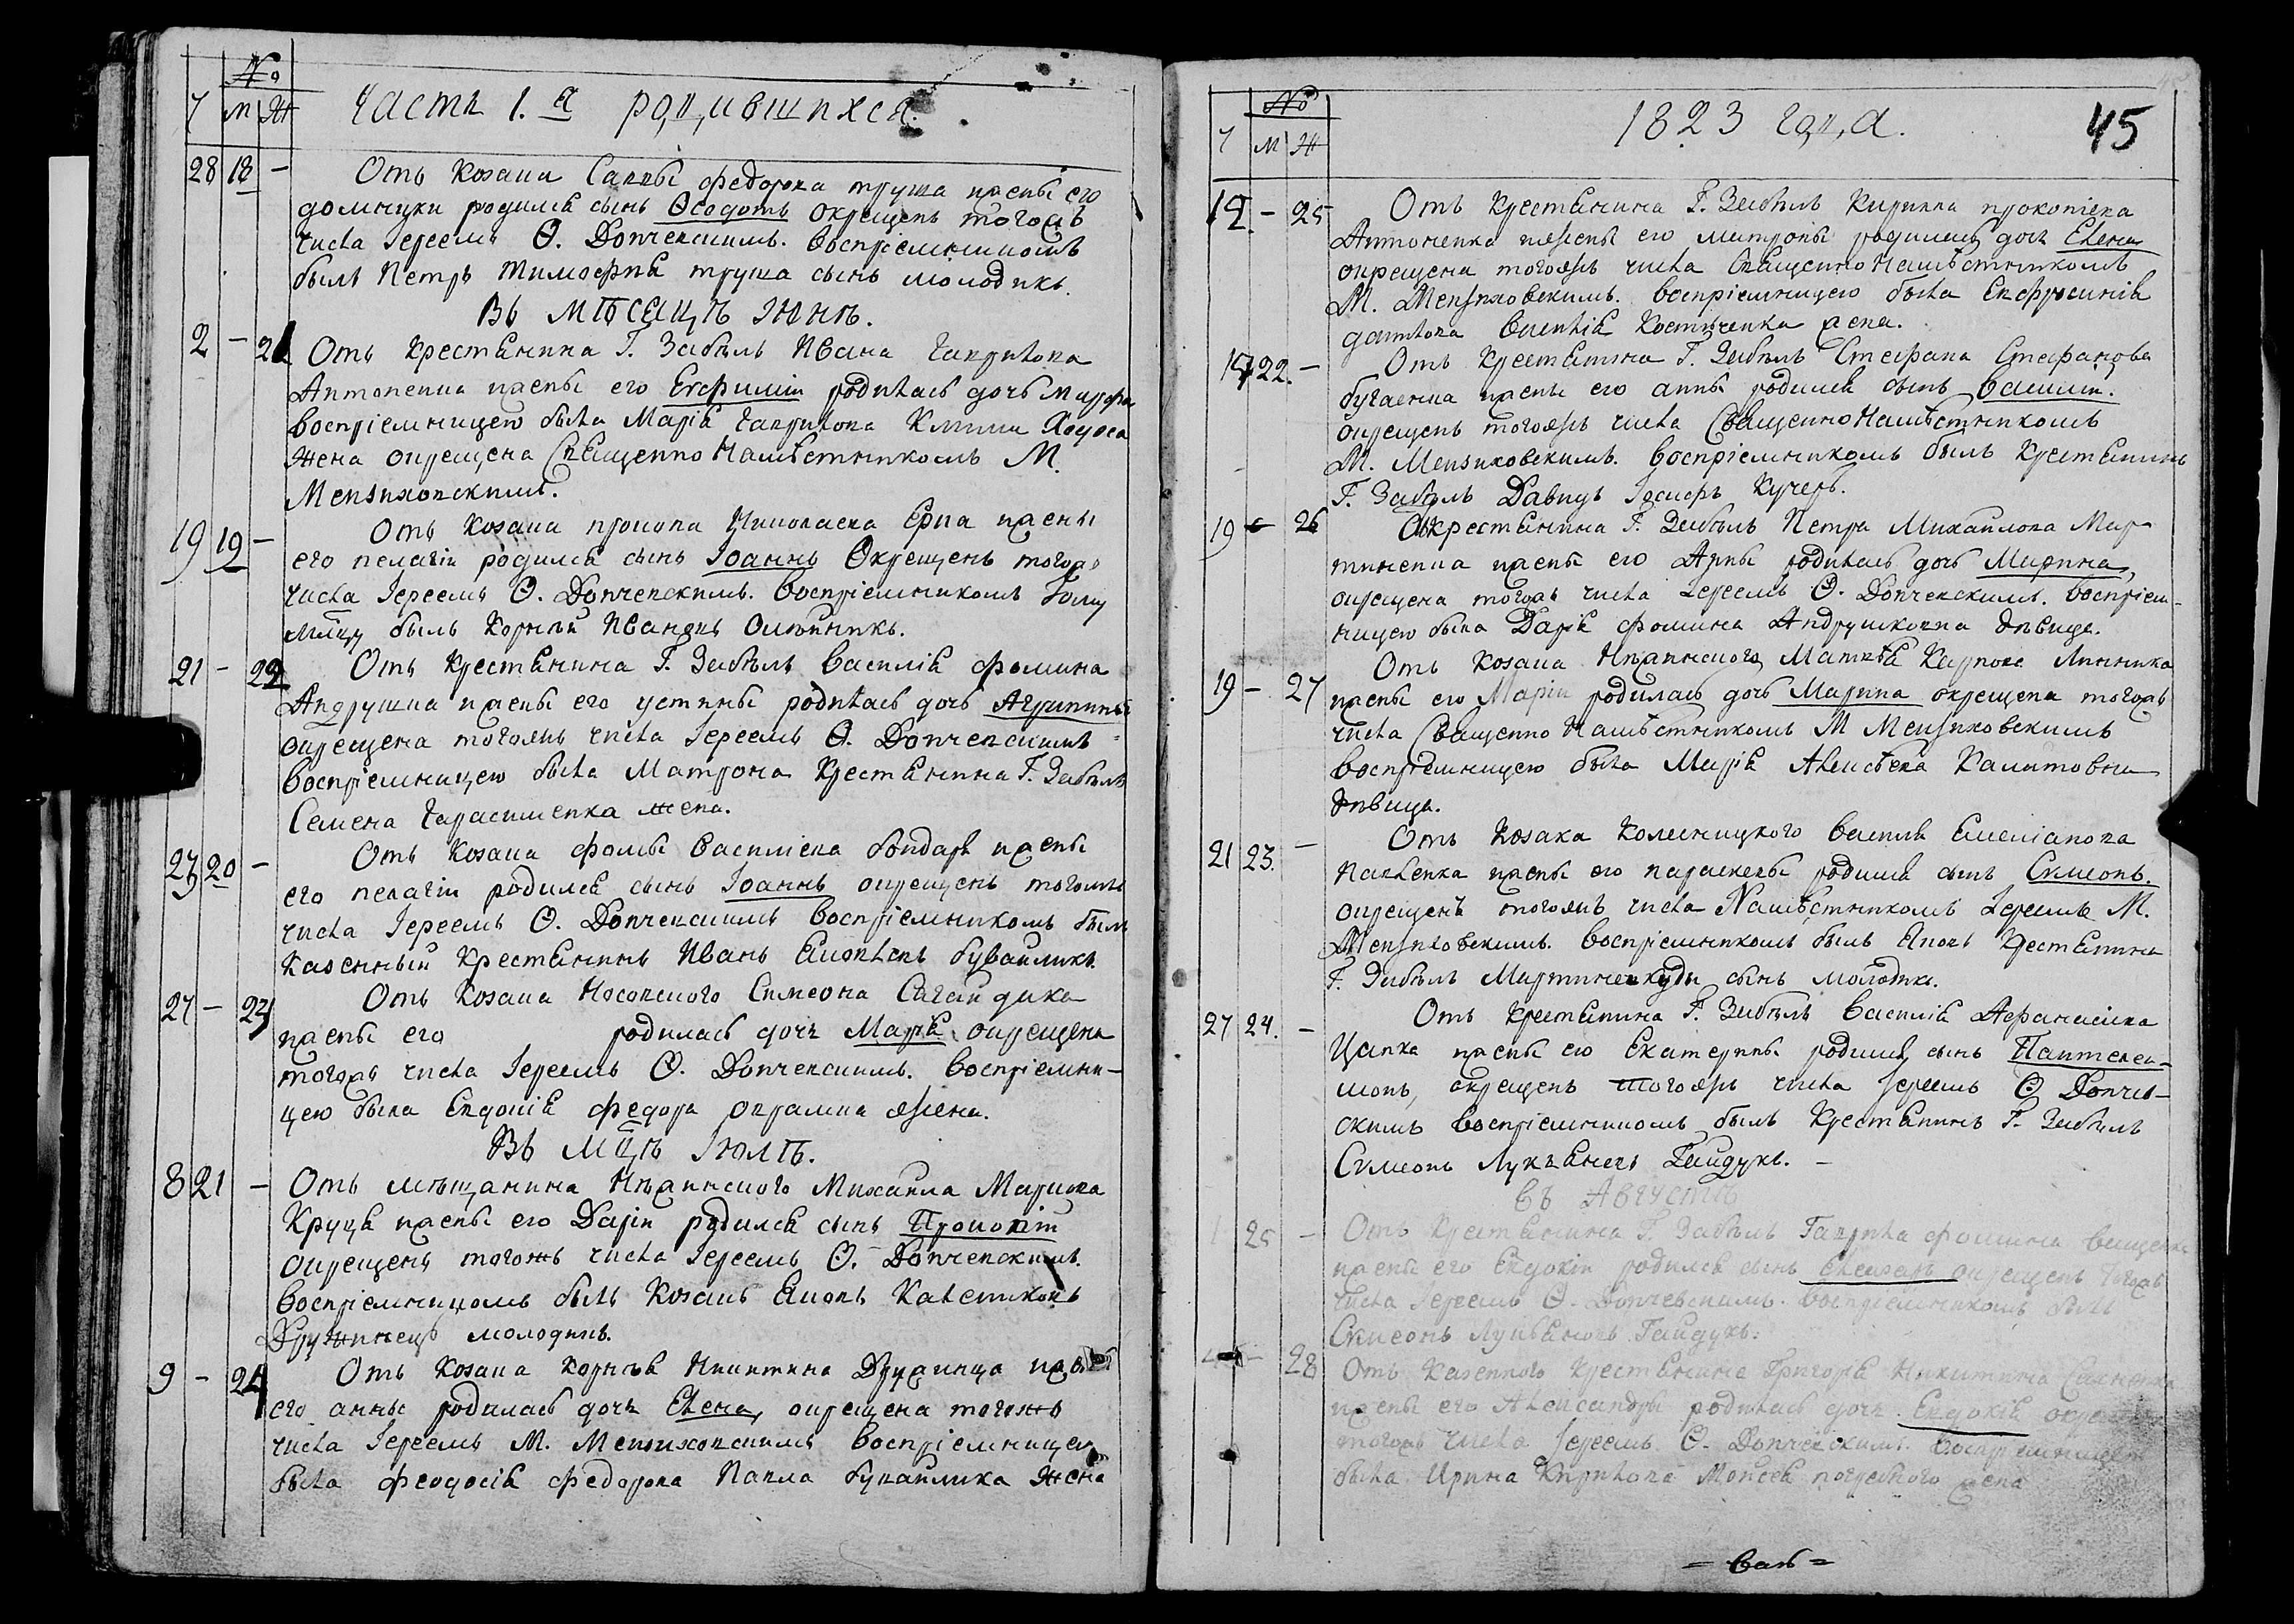 №
Ч М Ж
Часть 1.я родившихся.
28 18 – Отъ Козака Саввы федорова труша жены его
домникии родился сынъ Ѳеодотъ окрещенъ тогожъ
числа Іереемъ Ѳ. Дончевскимъ. воспріемникомъ
былъ Петръ тимофѣя труша сынъ молодикъ.
Въ мѣсяцѣ Юнѣ.
2 – 21 Отъ крестьянина Г. Забѣлъ Ивана гаврилова
Антоненка жены его Евфиміи родилась дочь марфа
воспріемницею была Марія гаврилова
жена окрещена Священно Намѣстникомъ М.
Мензиховскимъ.
19 19 – Отъ козака прокопа Николаева жены
его пелагіи родился сынъ Іоаннъ Окрещенъ тогожъ
числа Іереемъ Ѳ. Дончевскимъ. воспріемникомъ
былъ Корнѣй Ивановъ Олѣйникъ.
21 – 22 Отъ крестьянина Г. Забѣлъ василія фомина
Андрушка жены его устины родилась дочь Агрипина
окрещена тогожъ числа Іереемъ Ѳ. Дончевскимъ
воспріемницею была Матрона Крестьянина Г. Забѣлъ
Семена Гарасименка жена.
23 20 – Отъ козака фомы василіева бондаря жены
его пелагіи родился сынъ Іоаннъ окрещенъ тогожъ
числа Іереемъ Ѳ. Дончевскимъ воспріемникомъ былъ
Казенный Крестьянинъ Иванъ бувайликъ
27 – 23 Отъ Козака Носовского Симеона Сагайдака
жены его родилась дочь Марія окрещена
тогожъ числа Іереемъ Ѳ. Дончевскимъ. воспріемни-
цею была Евдокія федора жена.
Въ Мцѣ Іюлѣ.
8 21 – Отъ мѣщанина Нѣжинского Михаила Маркова
жены его Даріи родился сынъ Прокопій
окрещенъ тогожъ числа Іереемъ Ѳ. Дончевскимъ.
воспріемникомъ былъ Козакъ
Дружинецъ молодикъ.
9 – 24 Отъ Козака корнѣя Никитина Дружинца жены
его анны родилась дочь Елена, окрещена тогожъ
числа Іереемъ М. Мензиховскимъ воспріемницею
была феодосія федорова Павла бувайлика жена
№
Ч М Ж
1823 года.
45
12 – 25 Отъ Крестьянина Г. Забѣлъ Кирилла прокопіева
Антоненка жены его матроны родилась дочь Елена
окрещена тогожъ числа Священно Намѣстникомъ
М. Мензиховскимъ. воспріемницею была Евфросинія
василія Костюченка жена.
17 22. – Отъ Крестьянина Г. Забѣлъ Стефана Стефанова
бугаенка жены его анны родился сынъ василій.
окрещенъ тогожъ числа Священно Намѣстникомъ
М. Мензиховскимъ. воспріемникомъ былъ Крестьянинъ
Г. Забѣлъ Давидъ Іосифъ Кучеръ.
19 – 26 Отъ крестьянина Г. Забѣлъ Петра Михайлова Мар-
тиненка жены его родилась дочь Марина,
окрещена тогожъ числа Іереемъ Ѳ. Дончевскимъ. воспріем-
ницею была Дарія фомина Андрушковна дѣвица.
19 – 27 Отъ козака Нѣжинского Матвѣя Карпова Линника
жены его Маріи родилась дочь Марина окрещена тогожъ
числа Священно Намѣстникомъ М Мензиховскимъ
воспріемницею была Марія Алексѣева Калитовна
дѣвица.
21 23. – Отъ Козака Колесницкого василія Емеліанова
Павленка жены его параскевы родился сынъ Симеонъ.
окрещенъ тогожъ числа Намѣстникомъ Іереемъ М.
Мензиховскимъ. воспріемникомъ былъ Крестьянина
Г. Забѣлъ сынъ молодикъ.
27 24. – Отъ Крестьянина Г. Забѣлъ василія Афанасіева
Цапка жены его Екатерины родился сынъ Пантелеи-
монъ, окрещенъ тогожъ числа Іереемъ Ѳ Дончев-
скимъ воспріемникомъ былъ Крестьянинъ Г. Забѣлъ
Симеонъ Лукъяновъ Гайдукъ. –
въ Августѣ
1 25 – Отъ Крестьянина Г. Забѣлъ Гаврила фомина
жены его Евдокіи родился сынъ Алексѣй окрещенъ тогожъ
числа Іереемъ Ѳ. Дончевскимъ. воспріемникомъ былъ
Симеонъ Лукъяновъ Гайдукъ.
– 28 Отъ Казенного Крестьянина Григорія Никитина
жены его Александры родилась дочь Евдокія окрещена
тогожъ числа Іереемъ Ѳ. Дончевскимъ. воспріемницею
была Ирина Кирилова Мойсея жена